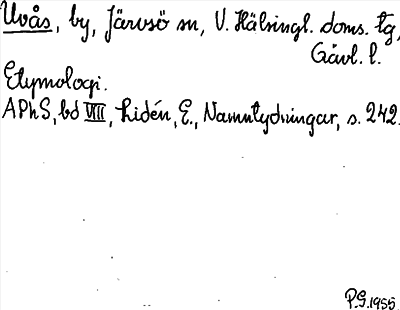 Uvås, by, Järvsö sn, V. Hälsingl. doms. tg,
Gävl. l.
Etymologi.
APhS, bd VIII, Lidén, E., Namntydningar, s. 242.
P.G. 1955